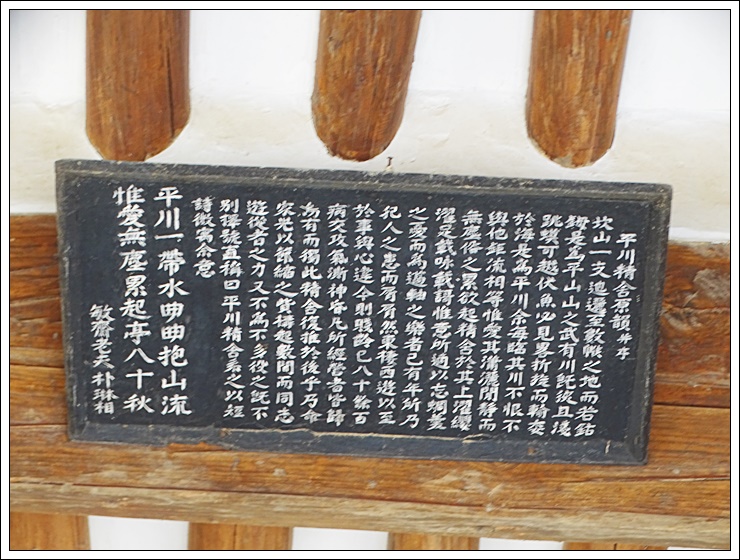 平川精舍原韻幷序
坎山一支迤邐至數帿之地而若鈷
鉧是爲平山山之武有川旣淡且淺
跳蟆可越伏魚必見畧折旋而輸委
於海是爲平川余每臨其川不恨不
與他鉅流相等惟愛其瀟灑閒靜而
無塵俗之累欲起精舍於其上濯纓
濯足載咏載謌惟意所適以忘蠲蓋
之憂而爲薖軸之樂者已有年所乃
犯人之患而屑屑然東棲西遊以至
於事與心違今則賤齡已八十餘古
病交攻氣澌神昏凡所經營者皆歸
烏有而獨此精舍復推於後乎乃命
家兒以節縮之貲構起數間而同志
遊從者之力又不爲不多役之旣不
別揭號直稱曰平川精舍系之以短
詩微寓余意
平川一帶水曲曲抱山流
惟愛無塵累起亭八十秋
敏齋老夫朴琳相